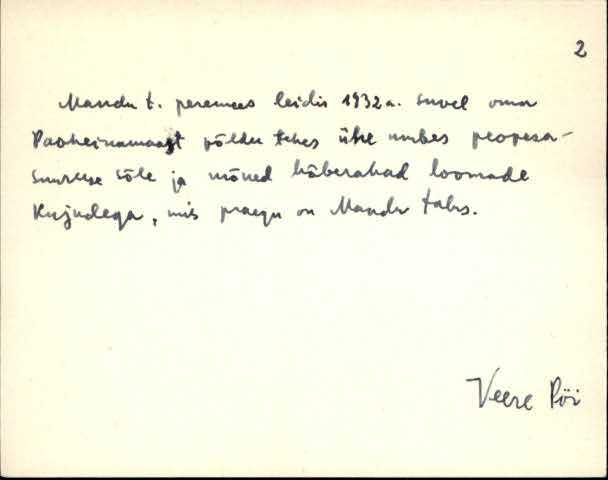 2
Mandu t. peremees leidis 1932 a. suvel oma
Paoheinamaast põldu tehes ühe umbes peopesa-
suuruse sõle ja mõned hõberahad loomade
kujudega, mis praegu on Mandu talus.
Veere Pöi